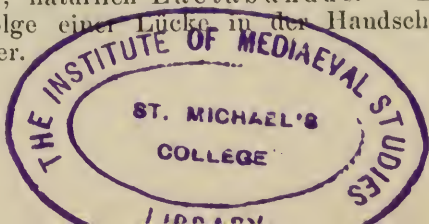 natürlich
olge einer Lücke in der Handsch
er.
THE INSTITUTE OF MEDIAEVAL STUDIES
ST. MICHAEL'S
COLLEGE
LIBRARY